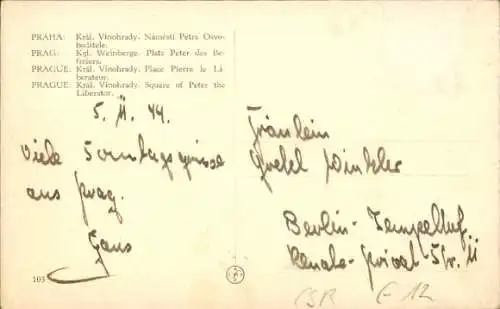 PRAHA: Král. Vinohrady. Náměstí Petra Osvo-
boditele.
PRAG: Kgl. Weinberge. Platz Peter des Be-
freiers.
PRAGUE: Král. Vinohrady. Place Pierre le Li-
berateur.
PRAGUE: Král. Vinohrady. Square of Peter the
Liberator.
5. II. 44.
Viele Sonntagsgrüsse
aus Prag.
Hans
Fräulein
Gretel Winkler
Berlin-Tempelhof
Renate-Privat-Str. 11
103
ČSR E 12